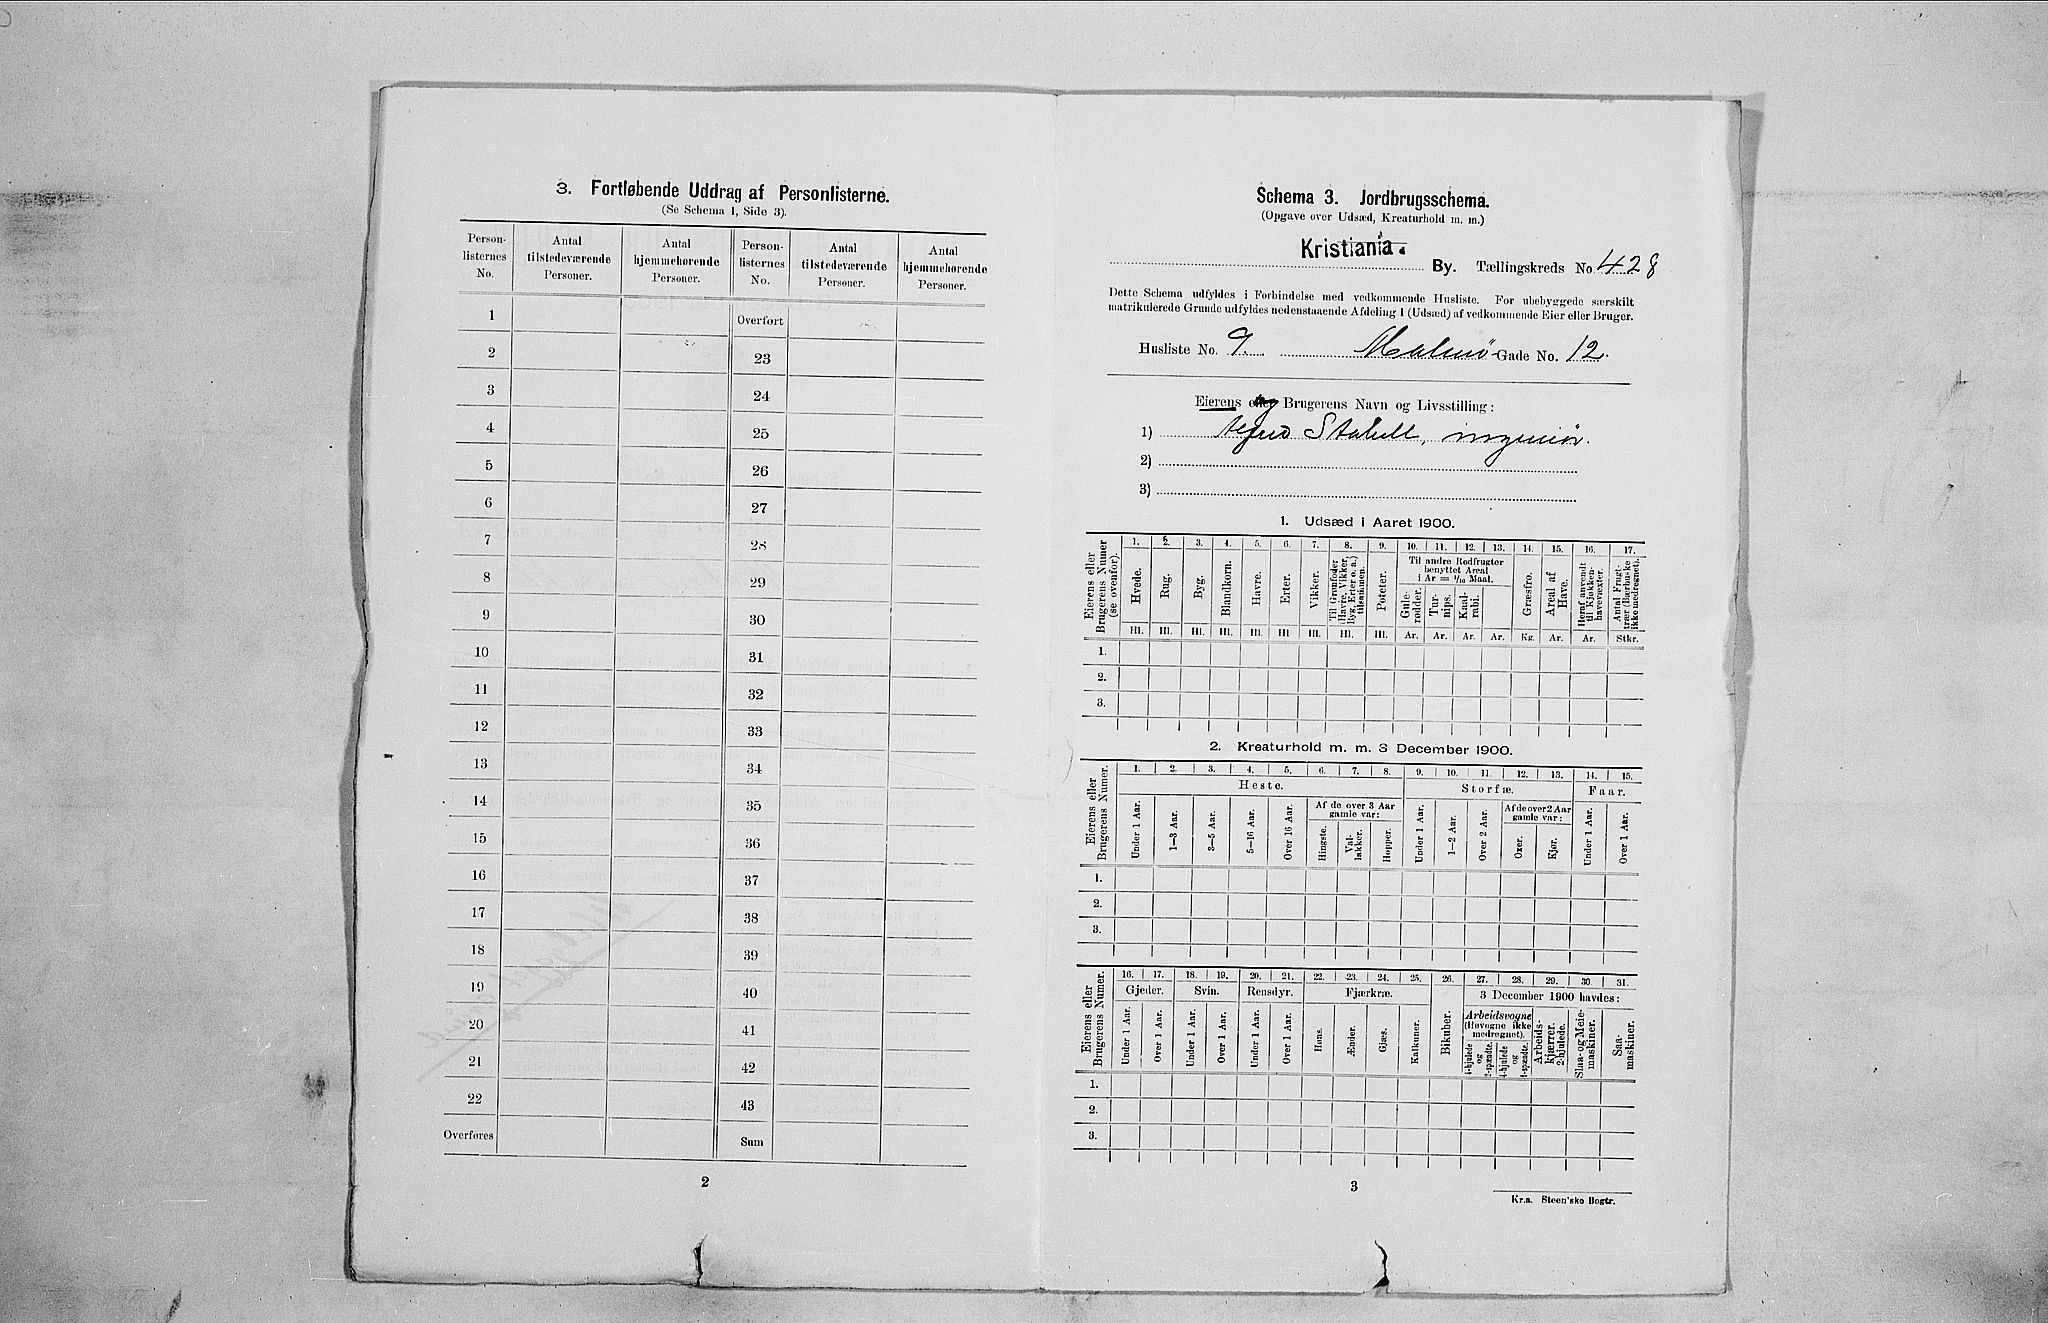 3. Fortløbende Uddrag af Personlisterne.
(Se Schema 1, Side 3).
Person-listernes No. Antal tilstedeværende Personer. Antal hjemmehørende Personer. Person-listernes No. Antal tilstedeværende Personer. Antal hjemmehørende Personer.
1 Overført
2 23
3 24
4 25
5 26
6 27
7 28
8 29
9 30
10 31
11 32
12 33
13 34
14 35
15 36
16 37
17 38
18 39
19 40
20 41
21 42
22 43
Overføres Sum
2
Schema 3. Jordbrugsschema.
(Opgave over Udsæd, Kreaturhold m. m.)
Kristiania. By. Tællingskreds No. 428
Dette Schema udfyldes i Forbindelse med vedkommende Husliste. For ubebyggede særskilt
matrikulerede Grunde udfyldes nedenstaaende Afdeling 1 (Udsæd) af vedkommende Eier eller Bruger.
Husliste No. 9. Malmö-Gade No. 12.
Eierens og Brugerens Navn og Livsstilling:
1) Stabell, ingeniör.
2)
3)
1. Udsæd i Aaret 1900.
Eierens eller Brugerens Numer (se ovenfor).
1. 2. 3. 4. 5. 6. 7. 8. 9. 10. 11. 12. 13. 14. 15. 16. 17.
Hvede. Rug. Byg. Blandkorn. Havre. Erter. Vikker. Til Grønfoder (Havre, Vikker, Byg, Erter o. a.) tilsammen. Poteter. Til andre Rodfrugter benyttet Areal i Ar = 1/10 Maal. Gule-rødder. Tur-nips. Kaal-rabi. Græsfrø. Areal af Have. Heraf anvendt til Kjøkken-havevæxter. Antal Frugt-trær (Bærbuske ikke medregnet).
Hl. Hl. Hl. Hl. Hl. Hl. Hl. Hl. Hl. Ar. Ar. Ar. Ar. Kg. Ar. Ar. Stkr.
1.
2.
3.
2. Kreaturhold m. m. 3 December 1900.
Eierens eller Brugerens Numer.
1. 2. 3. 4. 5. 6. 7. 8. 9. 10. 11. 12. 13. 14. 15.
Heste. Storfæ. Faar.
Af de over 3 Aar gamle var: Af de over 2 Aar gamle var:
Under 1 Aar. 1—3 Aar. 3—5 Aar. 5—16 Aar. Over 16 Aar. Hingste. Val-lakker. Hopper. Under 1 Aar. 1—2 Aar. Over 2 Aar. Oxer. Kjør. Under 1 Aar. Over 1 Aar.
1.
2.
3.
Eierens eller Brugerens Numer.
16. 17. 18. 19. 20. 21. 22. 23. 24. 25. 26. 27. 28. 29. 30. 31.
Gjeder. Svin. Rensdyr. Fjærkræ. Bikuber. 3 December 1900 havdes:
Arbeidsvogne (Høvogne ikke medregnet).
Under 1 Aar. Over 1 Aar. Under 1 Aar. Over 1 Aar. Under 1 Aar. Over 1 Aar. Høns. Ænder. Gjæs. Kalkuner. 4-hjulede og 2-spændte. 4-hjulede og 1-spændte. Arbeids-kjærrer. 2-hjulede. Slaa- og Meie-maskiner. Saa-maskiner.
1.
2.
3.
3
Kr.a. Steen'ske Bogtr.